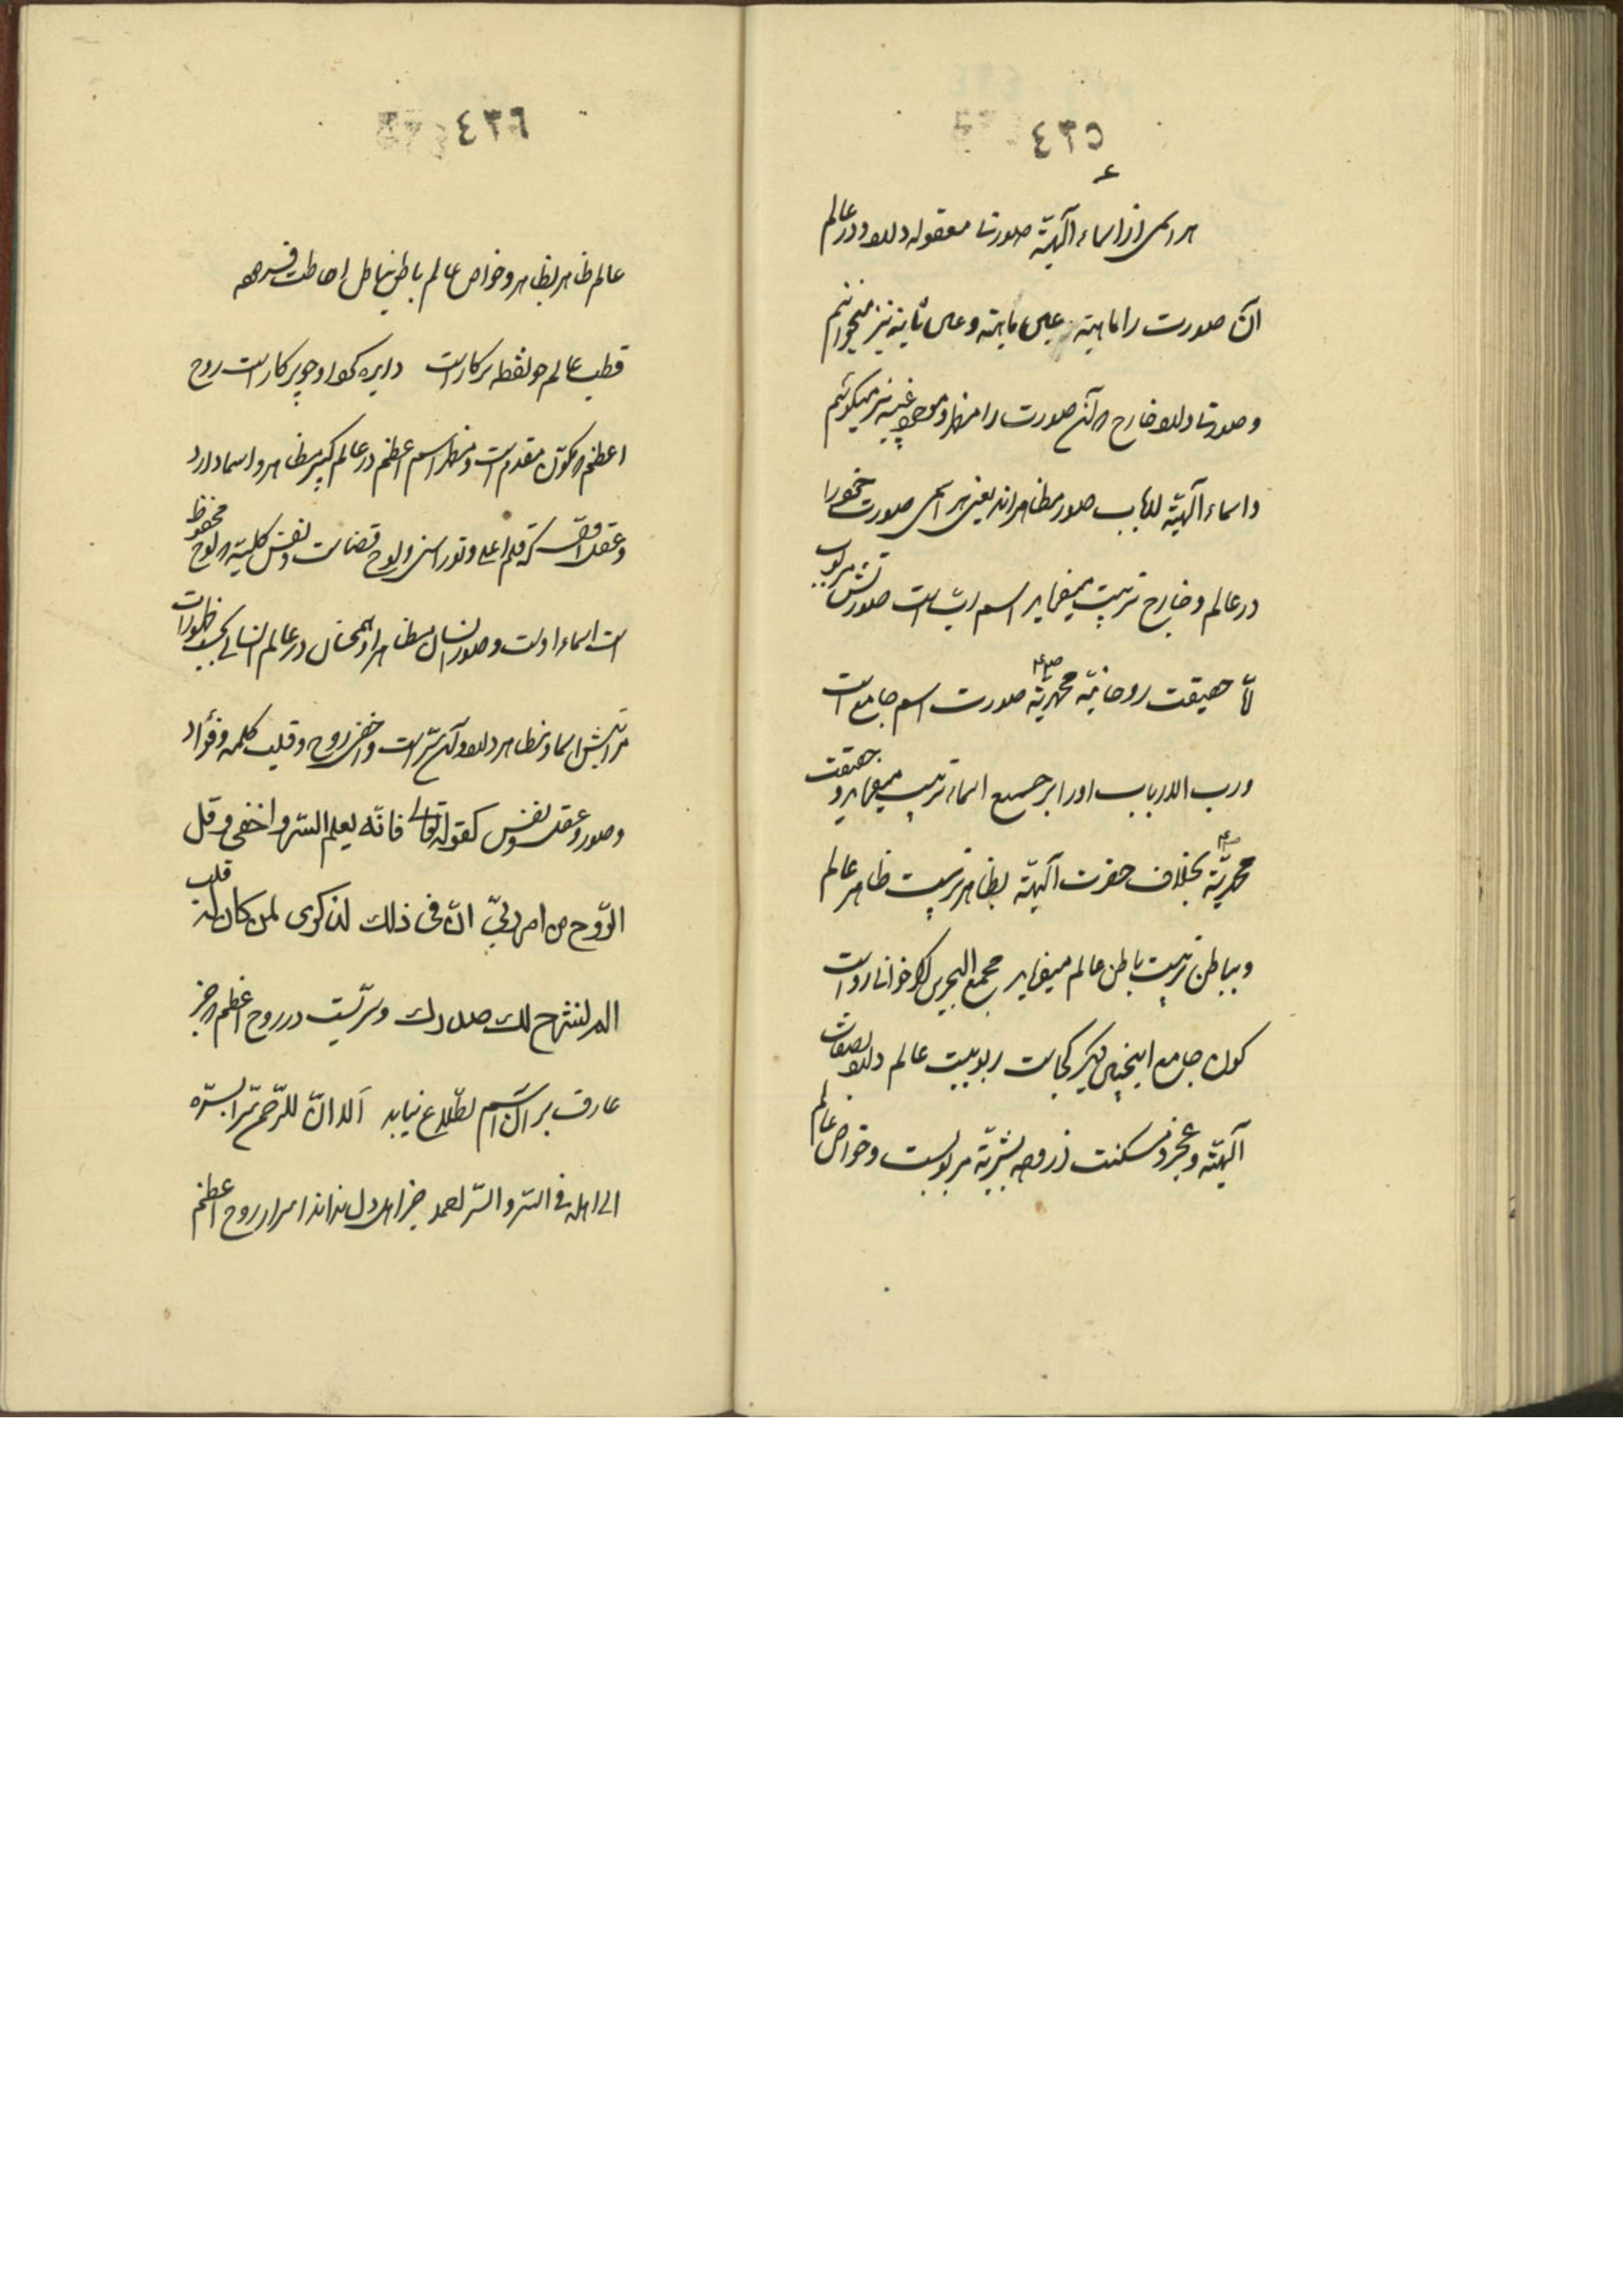 ٤٣٥
هر اسمی از اسماء آلهیّة صورتی معقوله دارد و در عالم
آن صورت را ماهیة و عین ثابته نیز میخوانیم
و صورتی دارد خارج آن صورت را مظاهر و موجود غیبیه نیز میگوئیم
و اسماء آلهیّة ارباب صور مظاهراند یعنی هر اسمی صورت خود را
در عالم و خارج تربیت میفرماید اسم رب است صورتش مربوب
امّا حقیقت روحانیّه محمدیّة صورت اسم جامع است
و رب الارباب او را بر جمیع اسماء تربیت میفرماید و حقیقت
محمدیّة بخلاف حضرت آلهیّة بظاهر تربیت ظاهر عالم
و بباطن تربیت باطن عالم میفرماید مجمع البحرین اگر خوانی رواست
کون جامع اینچنین دیگر کجاست ربوبیت عالم دارد بصفات
آلهیّة و عجز و مسکنت از وجه بشریّة مربوبیت و خواص عالم
٤٣٦
عالم ظاهر بظاهر و خواص عالم باطن بباطن احاطت
قطب عالم چو نقطه پرکار است دایره گرد او چو پرکار است روح
اعظم مقدم است و مظهر اسم اعظم در عالم کبیر مظاهر و اسما دارد
و عقل اول که قلم اعلی و نور است و لوح قضاست و نفس کلیّة لوح محفوظ
است اسماء اوست و صور مظاهر او همچنان در عالم انسانی بحسب ظهورات
مراتبش اسما و مظاهر دارد و آن سرّ است و خفی روح و قلب کلمه و فؤاد
و صدر و عقل و نفس کقوله تعالی فانّه یعلم السّر و اخفی و قل
الرّوح من امر ربّی انّ فی ذلك لذکری لمن کان له قلب
الم نشرح لك صدرك و سرّیست در روح اعظم جز
عارف بر آن اسم اطّلاع نیابد الا انّ للرّحمن سرّا بسرّه
الی اهله فی السّر و السّر جز اهل دل نداند اسرار روح اعظم